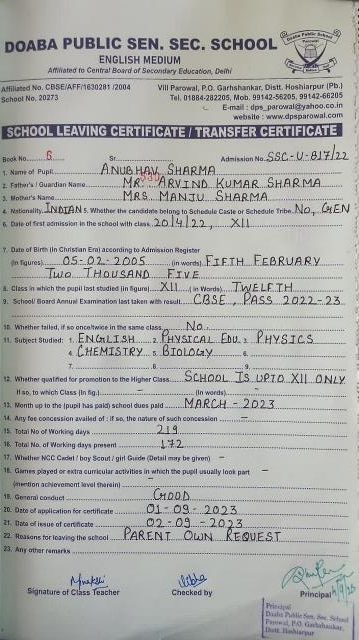 DOABA PUBLIC SEN. SEC. SCHOOL
ENGLISH MEDIUM
Affiliated to Central Board of Secondary Education, Delhi
Affiliated No. CBSE/AFF/1630281 /2004
School No. 20273
Vill Parowal, P.O. Garhshankar, Distt. Hoshiarpur (Pb.)
Tel. 01884-282205, Mob. 99142-56205, 99142-66205
E-mail : dps_parowal@yahoo.co.in
website : www.dpsparowal.com
SCHOOL LEAVING CERTIFICATE / TRANSFER CERTIFICATE
Book No. 6 Sr. Admission No. SSC-U-817/22
1. Name of Pupil ANUBHAV SHARMA
2. Father's / Guardian Name MR. ARVIND KUMAR SHARMA
3. Mother's Name MRS. MANJU SHARMA
4. Nationality INDIAN 5. Whether the candidate belong to Schedule Caste or Schedule Tribe. No, GEN
6. Date of first admission in the school with class 20/4/22, XII
7. Date of Birth (In Christian Era) according to Admission Register
(In figures) 05-02-2005 (in words) FIFTH FEBRUARY
TWO THOUSAND FIVE
8. Class in which the pupil last studied (in figure) XII (in Words) TWELFTH
9. School Board Annual Examination last taken with result CBSE, PASS 2022-23
10. Whether failed, if so once/twice in the same class No.
11. Subject Studied: 1. ENGLISH 2. PHYSICAL EDU. 3. PHYSICS
4. CHEMISTRY 5. BIOLOGY 6.
7. 8. 9.
12. Whether qualified for promotion to the Higher Class SCHOOL IS UPTO XII ONLY
If so, to which Class (In fig.) - (in words) -
13. Month up to the (pupil has paid) school dues paid MARCH - 2023
14. Any fee concession availed of : if so, the nature of such concession -
15. Total No. of Working days 219
16. Total No. of Working days present 172
17. Whether NCC Cadet / boy Scout / girl Guide (Detail may be given) -
18. Games played or extra curricular activities in which the pupil usually look part -
(mention achievement level therein) -
19. General conduct GOOD
20. Date of application for certificate 01-09-2023
21. Date of issue of certificate 02-09-2023
22. Reasons for leaving the school PARENT OWN REQUEST
23. Any other remarks
Signature of Class Teacher Checked by Principal
Principal
Doaba Public Sen. Sec. School
Parowal, P.O. Garhshankar,
Distt. Hoshiarpur